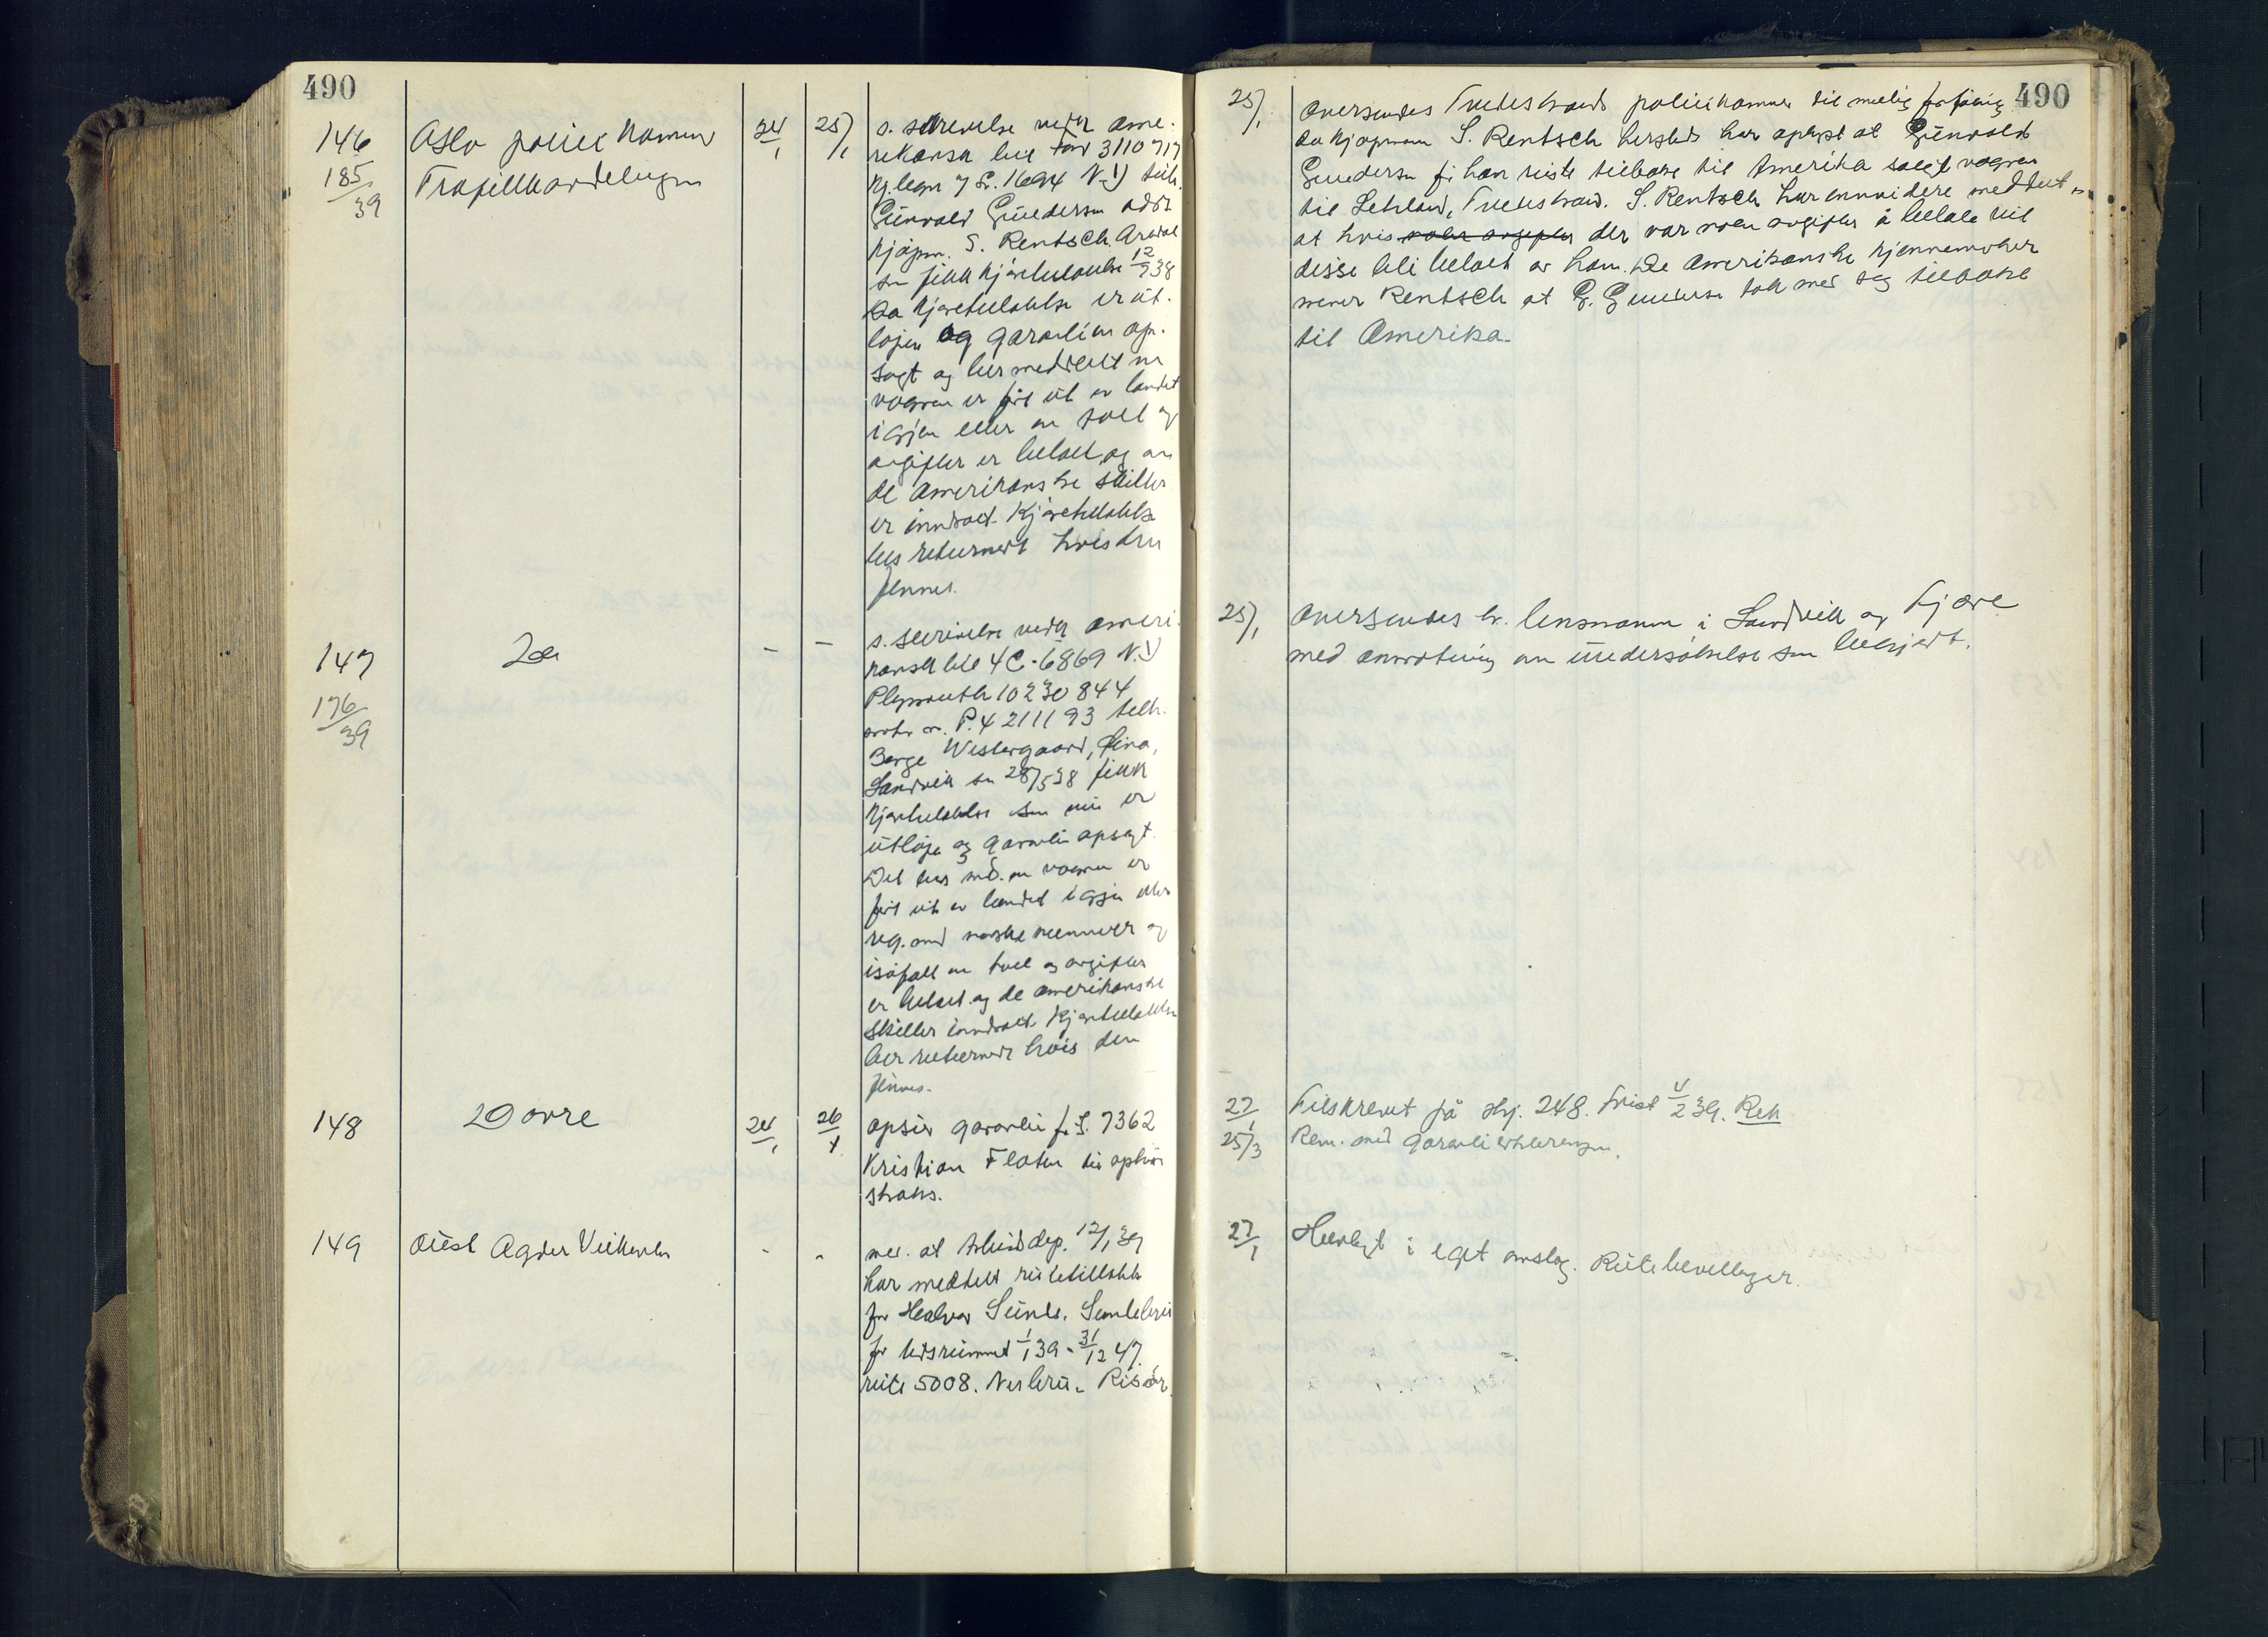 490
146
185/39
Oslo politikammer
Trafikkavdelingen
24/1
25/1
s. skrivelse vedr. ame-
rikansk bil Ford 3110717
kj.tegn 7 Sr. 1694 N.J. tilh.
Gunvald Gundersen adr.
kjøpm. S. Rentsch. Arendal
som fikk kjøretillatelse 12/7 38
Da kjøretillatelse er ut-
løpen og garantien op-
sagt og bes meddelt om
vognen er ført ut av landet
igjen eller om toll og
avgifter er betalt, og om
de amerikanske skilter
er inndradt. Kjøretillatelse
bes returnert hvis den
finnes.
147
176/39
Do
-
-
s. skrivelse vedr. ameri-
kansk bil 4C-6869 N.J.
Plymouth 10230844
motor nr. P.4 211193 tilh.
Børge Westergaard, Fina,
Landvik som 28/5 38 fikk
kjøretillatelse som nu er
utløpe og garantien opsagt.
Det bes md. om vognen er
ført ut av landet igjen eller
reg. med norske nummer og
isåfall om toll og avgifter
er betalt og de amerikanske
skilter inndradt. Kjøretillatelsen
bes returnert hvis den
finnes.
148
Dovre
24/1
26/1
opsier garantien for I. 7362
Kristian Flaten til ophør
straks.
149
Aust Agder Veikontor
-
-
med. at Arbeidsdep. 12/1 39
har meddelt rutetillatelse
for Halvor Sunde. Songebru
for tidsrummet 1/1 39 - 31/12 47.
rute 5008. Nesbru - Risør.
490
25/1
Oversendes Tvedestrand politikammer til mulig føining
da kjøpmann S. Rentsch hersteds har oplyst at Gunvald
Gundersen før han reiste tilbake til Amerika solgt vognen
til Tvedestrand. S. Rentsch har ennvidere meddelt
at hvis noen avgifter der var noen avgifter å betale vil
disse bli betalt av ham. De amerikanske kjennemerker
mener Rentsch at G. Gundersen tok med seg tilbake
til Amerika.
25/1
Oversendes hr. lensmannen i Landvik og Fjære
med anmodning om undersøkelse som begjært.
27/1
Tilskrevet på skj. 248. Frist 4/2 39. Rek
25/3
Rem. med garantierklæringen.
27/1
Henlagt i eget omslag. Rutebevillinger.